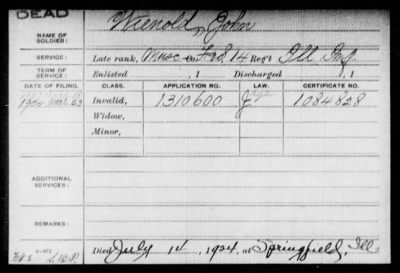 DEAD
NAME OF SOLDIER: Wienold, John
SERVICE: Late rank, Musc Co. F&S, 14 Reg't Ill Inf.
TERM OF SERVICE: Enlisted , 1 Discharged , 1
DATE OF FILING. CLASS. APPLICATION NO. LAW. CERTIFICATE NO.
1904 Invalid, 1310600 1084828
Widow,
Minor,
ADDITIONAL SERVICES:
REMARKS:
Died July 1, 1924, at Springfield, Ill.